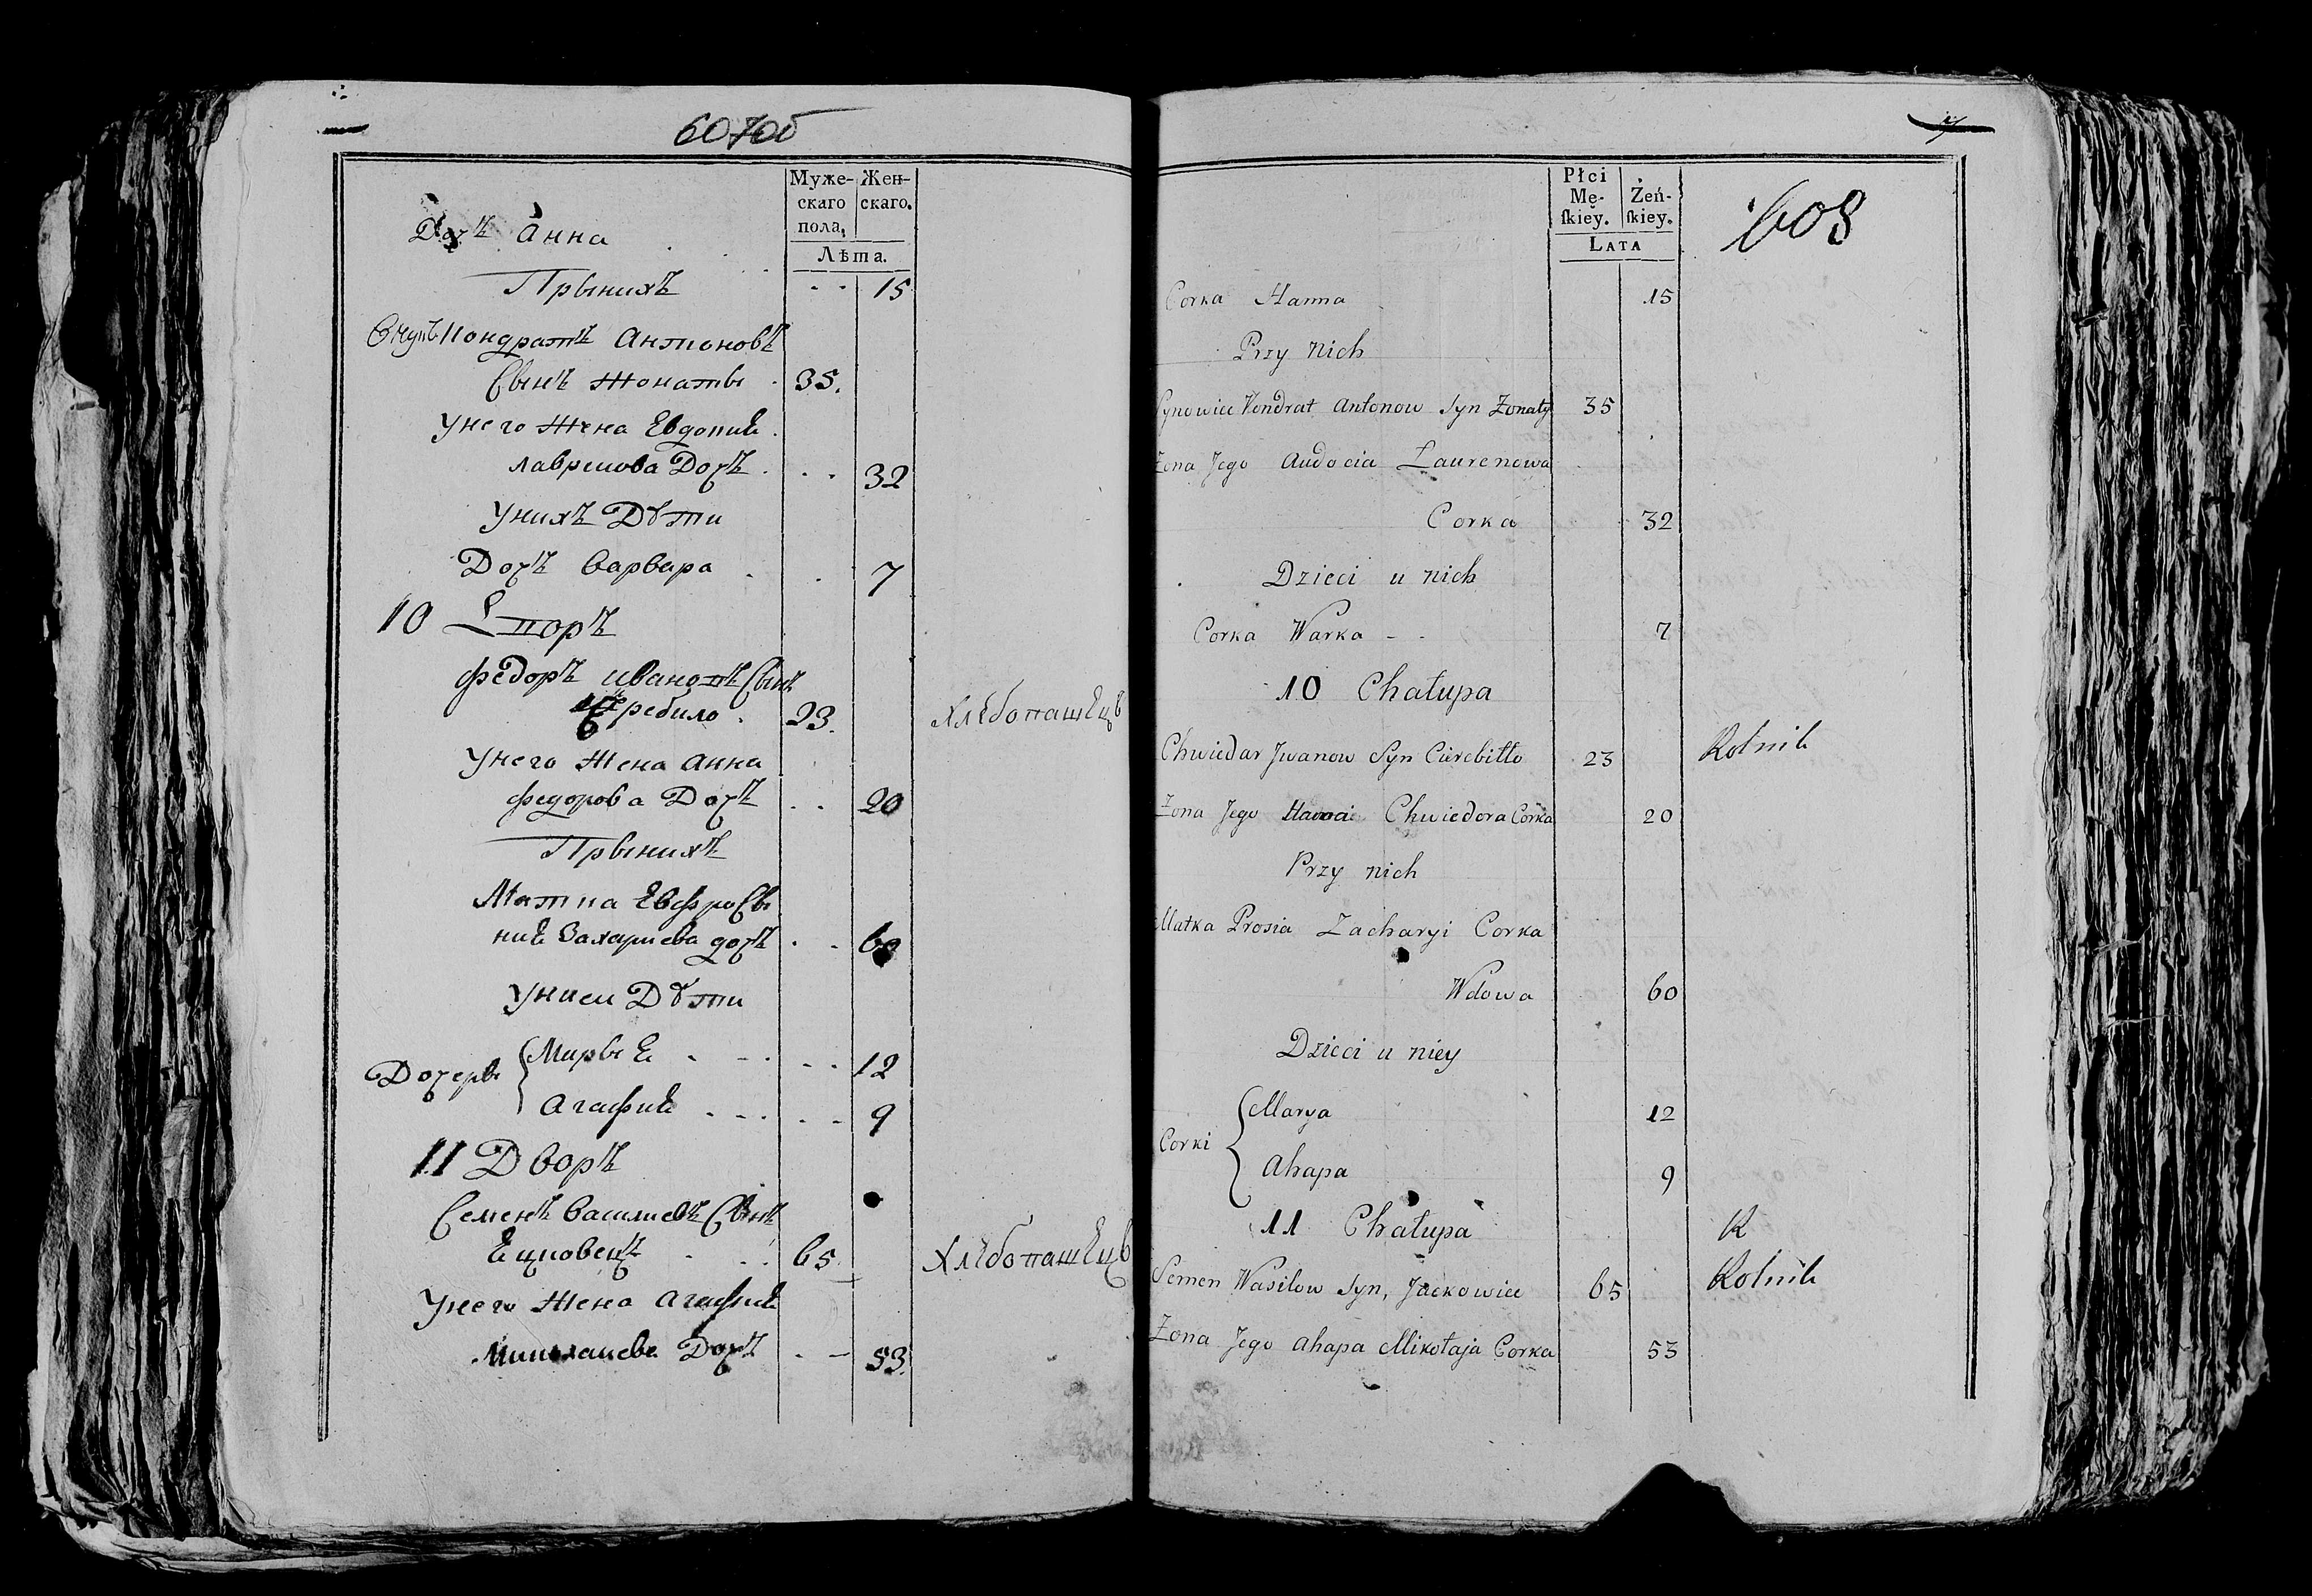 607об
Муже- Жен-
скаго скаго.
пола,
Лѣта.
Дочъ Анна
Прынихъ 15
Кондратъ Антоновъ
Сынъ Жонаты 35.
Унего Жена Евдокия
Лавренова Дочъ 32
Унихъ Дѣти
Дочъ Варвара 7
10 Дворъ
Федоръ Ивановъ Сынъ
Церебило 23. Хлѣбопашецъ
Унего Жена Анна
Федорова Дочъ 20
Прынихъ
Матка Евфросы
ния Захариева дочъ 60
Унеи Дѣти
Дочеры { Марыя 12
Агафия 9
11 Дворъ
Семенъ Василиевъ Сынъ
Ецковецъ 65 Хлѣбопашецъ
Унего Жена Агафия
Миколаева Дочъ 53.
Płci
Mę- Żeń-
ſkiey. ſkiey.
Lata
608
Corka Hanna 15
Przy Nich
Synowiec Kondrat Antonow Syn Żonaty 35
Żona Jego Audocia Ławrenowa
Corka 32
Dzieci u nich
Corka Warka 7
10 Chałupa
Chwiedar Jwanow Syn Cierebiłło 23 Rolnik
Żona Jego Hanna Chwiedora Corka 20
Przy nich
Matka Prosia Zacharyi Corka
Wdowa 60
Dzieci u niey
Corki { Marya 12
Ahapa 9
11 Chałupa R
Semen Wasilow Syn, Jackowiec 65 Rolnik
Żona Jego Ahapa Mikołaja Corka 53